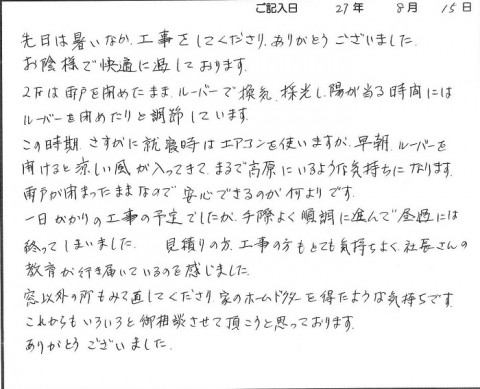 ご記入日 27年 8月 15日
先日は暑いなか、工事をしてくださり、ありがとうございました。
お陰様で快適に過しております。
2Fは雨戸を閉めたまま、ルーバーで換気、採光し、陽が当る時間には
ルーバーを閉めたりと調節しています。
この時期、さすがに就寝時はエアコンを使いますが、早朝、ルーバーを
開けると涼しい風が入ってきて、まるで高原にいるような気持ちになります。
雨戸が閉まったままなので安心できるのが何よりです。
一日がかりの工事の予定でしたが、手際よく順調に進んで昼過には
終ってしまいました。 見積りの方、工事の方もとても気持ちよく、社長さんの
教育が行き届いているのを感じました。
窓以外の所もみて直してくださり、家のホームドクターを得たような気持ちです。
これからもいろいろと御相談させて頂こうと思っております。
ありがとうございました。